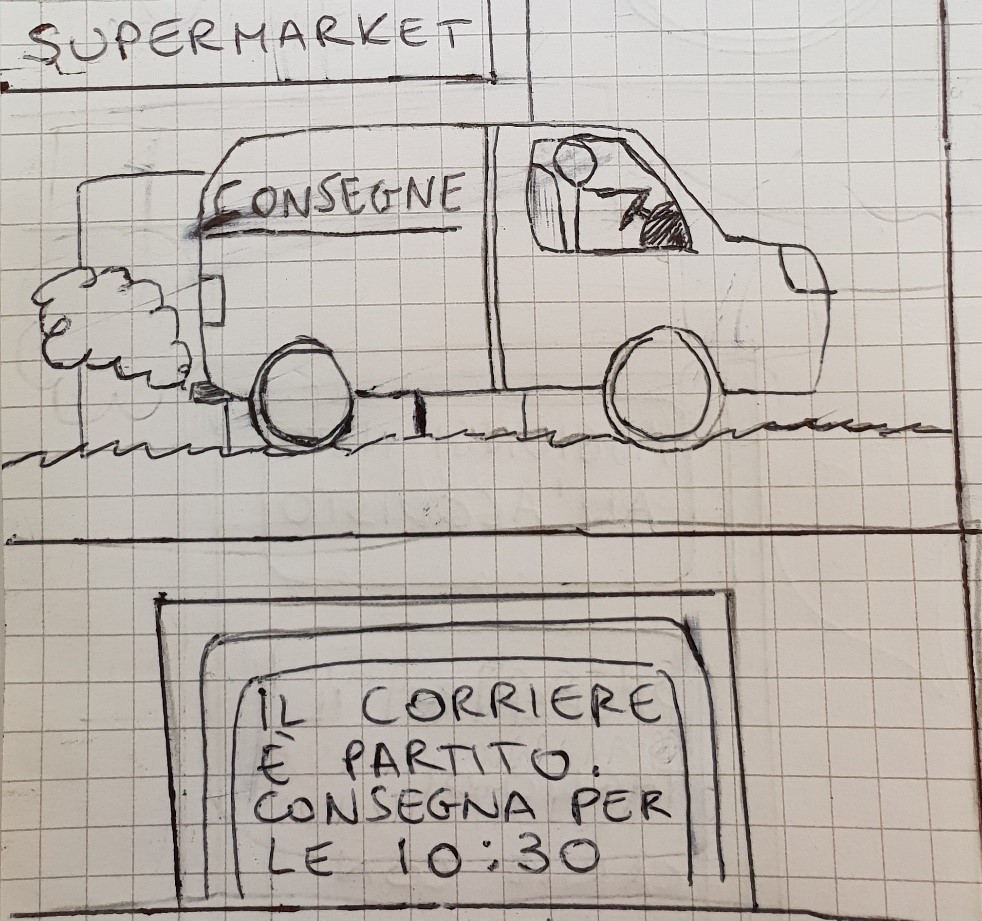 SUPERMARKET
CONSEGNE
IL CORRIERE
È PARTITO.
CONSEGNA PER
LE 10:30